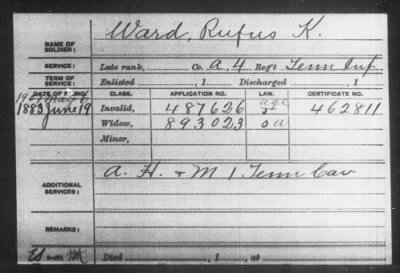 Ward, Rufus K.
NAME OF SOLDIER:
SERVICE: Late rank, Co. A, 4 Reg't Tenn Inf
TERM OF SERVICE: Enlisted , 1 Discharged , 1
DATE OF FILING. CLASS. APPLICATION NO. LAW. CERTIFICATE NO.
1883 June 19 Invalid, 487626 age 462811
Widow, 893023
Minor,
ADDITIONAL SERVICES: A. H. + M 1 Tenn Cav
REMARKS:
Died , 1 , at